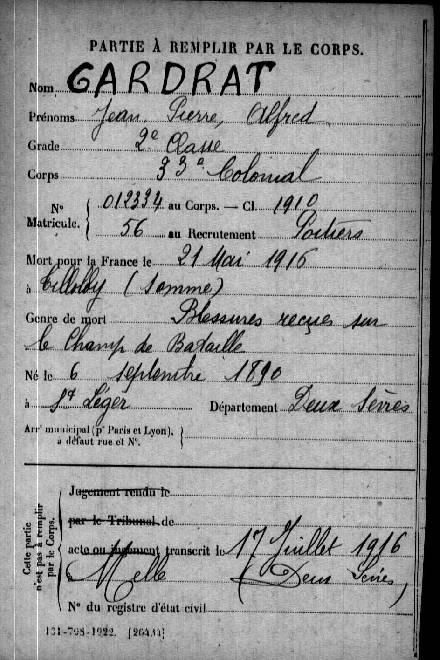 PARTIE À REMPLIR PAR LE CORPS.
Nom GARDRAT
Prénoms Jean Pierre, Alfred
Grade 2e Classe
Corps 33e Colonial
N° Matricule. { 012334 au Corps. — Cl. 1910
56 au Recrutement Poitiers
Mort pour la France le 21 Mai 1916
à Tilloloy (Somme)
Genre de mort Blessures reçues sur
le Champ de Bataille
Né le 6 septembre 1890
à St Léger Département Deux Sèvres
Arrt municipal (pr Paris et Lyon), à défaut rue et N°. }
Cette partie n'est pas à remplir par le Corps.
Jugement rendu le
par le Tribunal de
acte ou jugement transcrit le 17 Juillet 1916
à Melle (Deux Sèvres)
N° du registre d'état civil
131-708-1922. [26434]